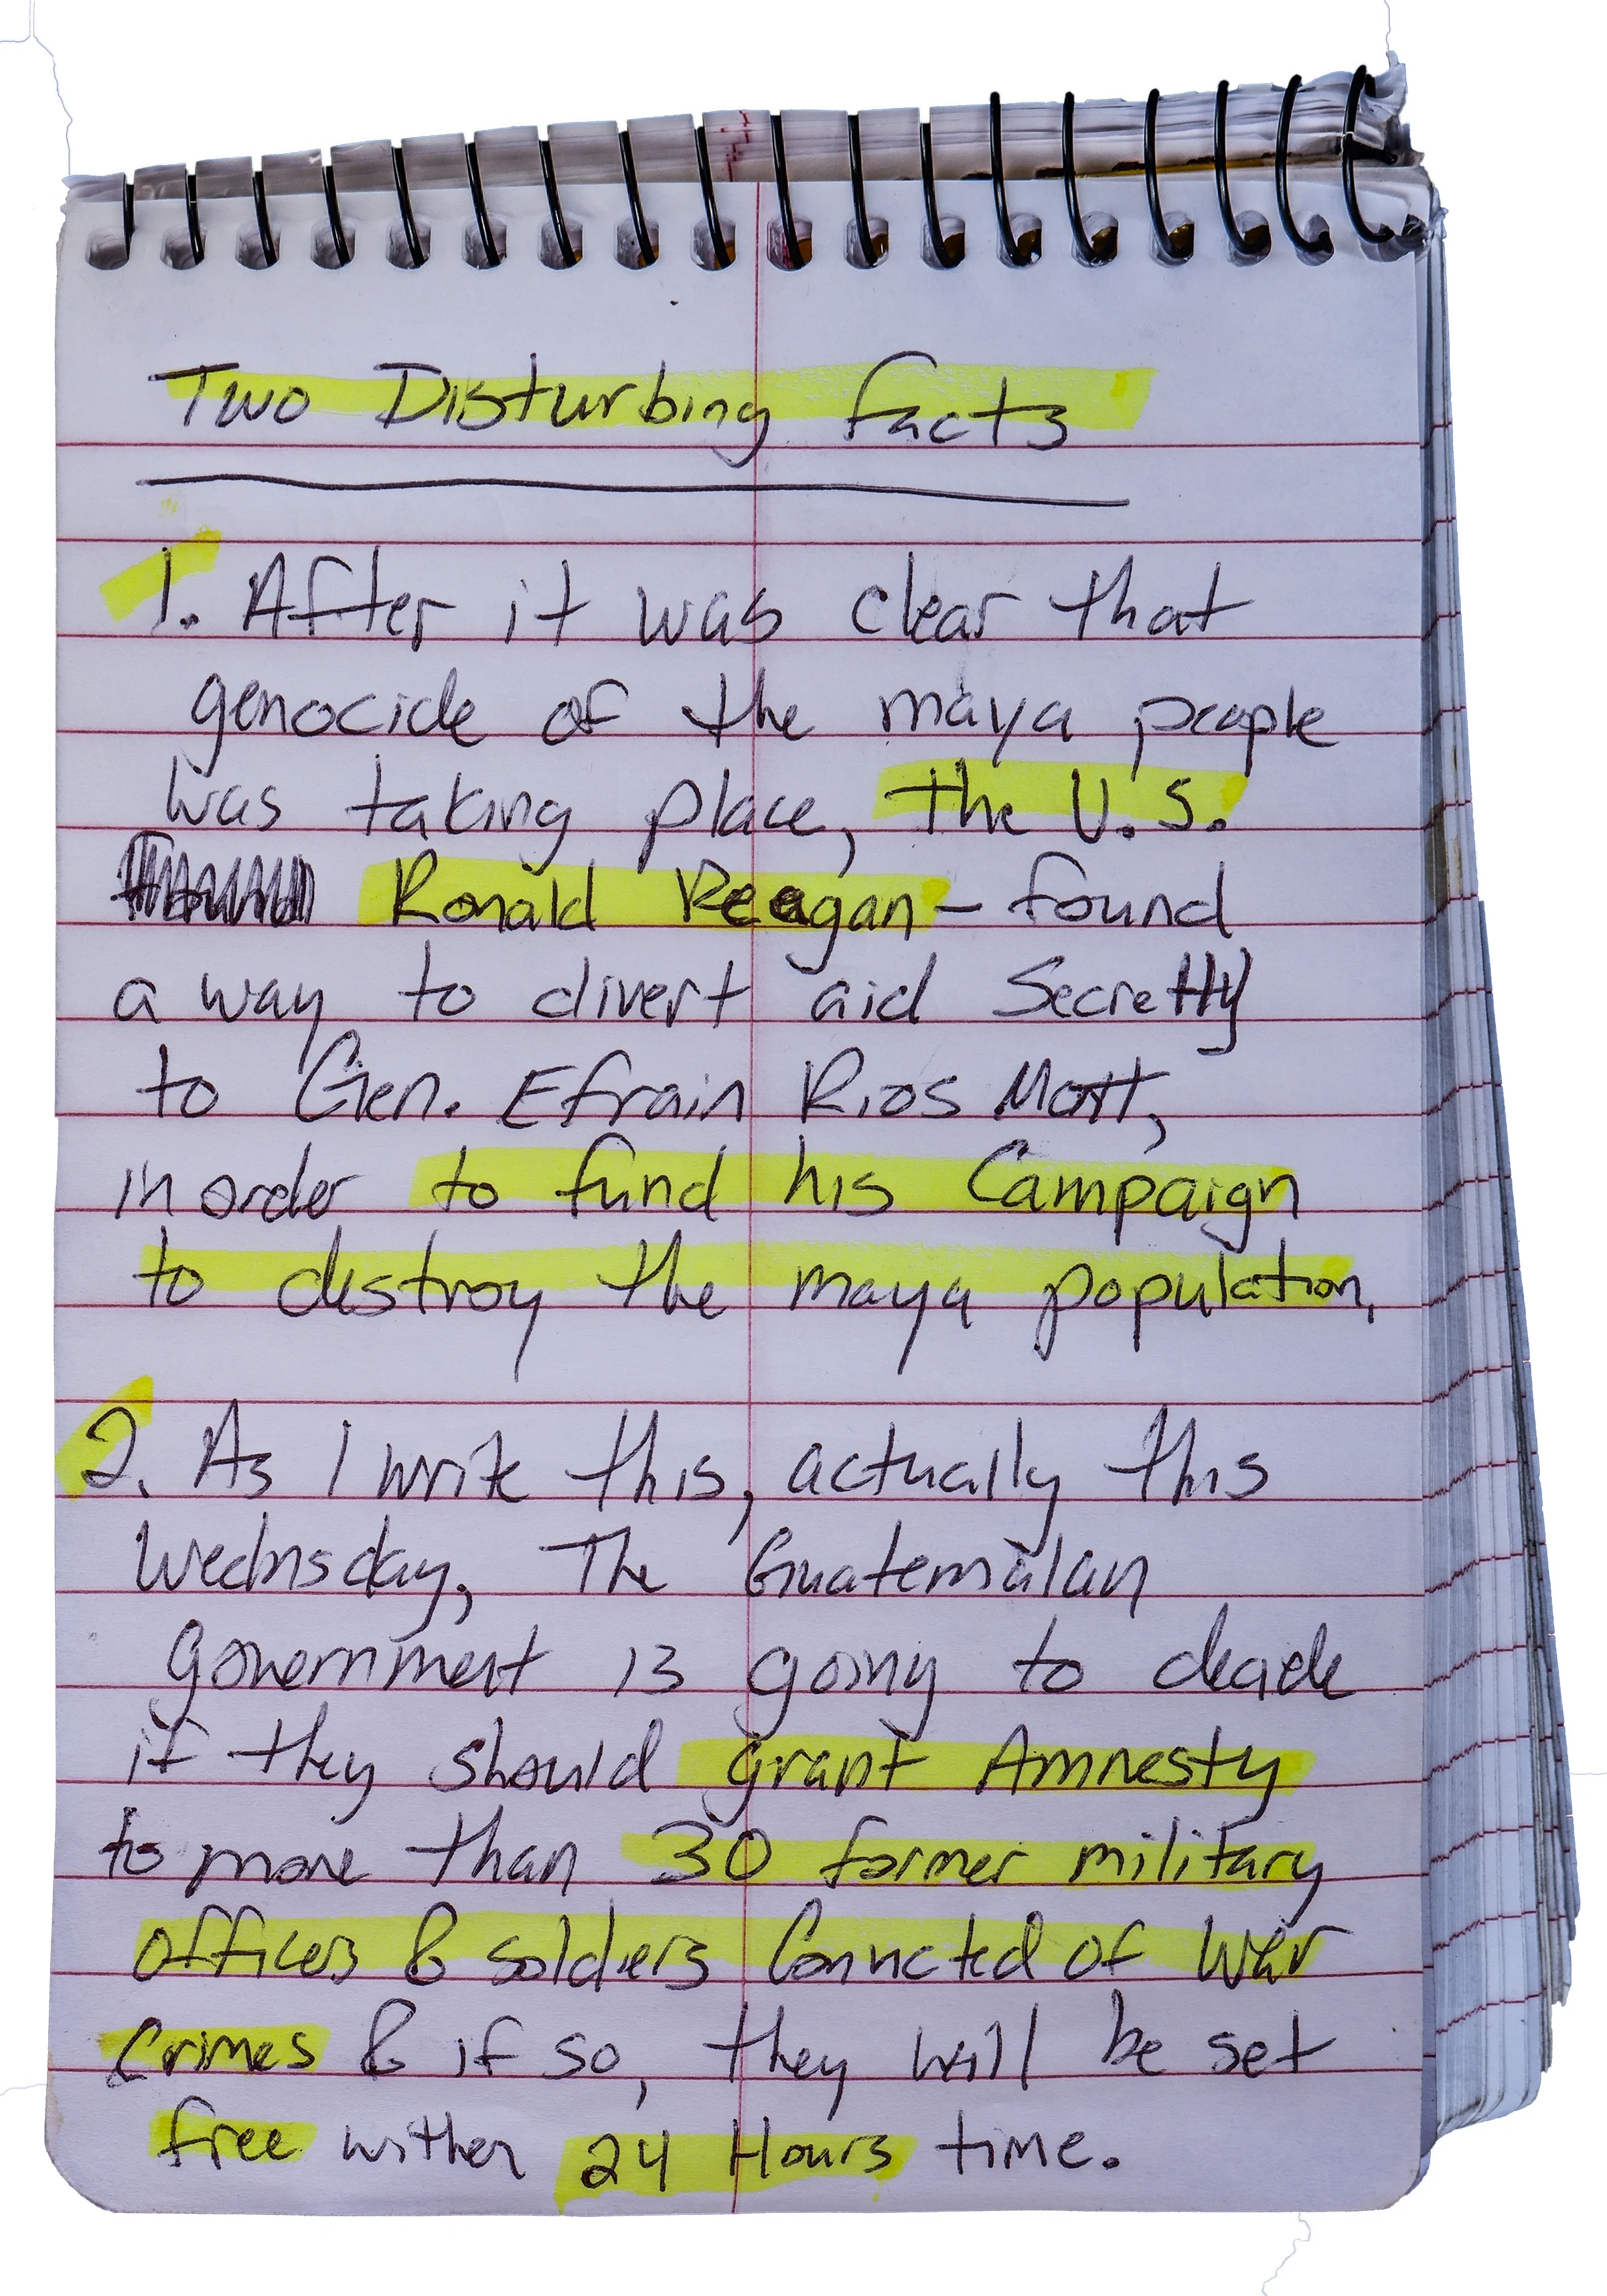 Two Disturbing facts
1. After it was clear that
genocide of the maya people
was taking place, the U.S.
Ronald Reagan - found
a way to divert aid Secretly
to Gen. Efrain Rios Mott,
in order to fund his Campaign
to destroy the maya population.
2. As I write this, actually this
Wednsday, The Guatemalan
government is going to decide
if they should grant Amnesty
to more than 30 former military
officers & soldiers Convicted of War
Crimes & if so, they will be set
free within 24 Hours time.